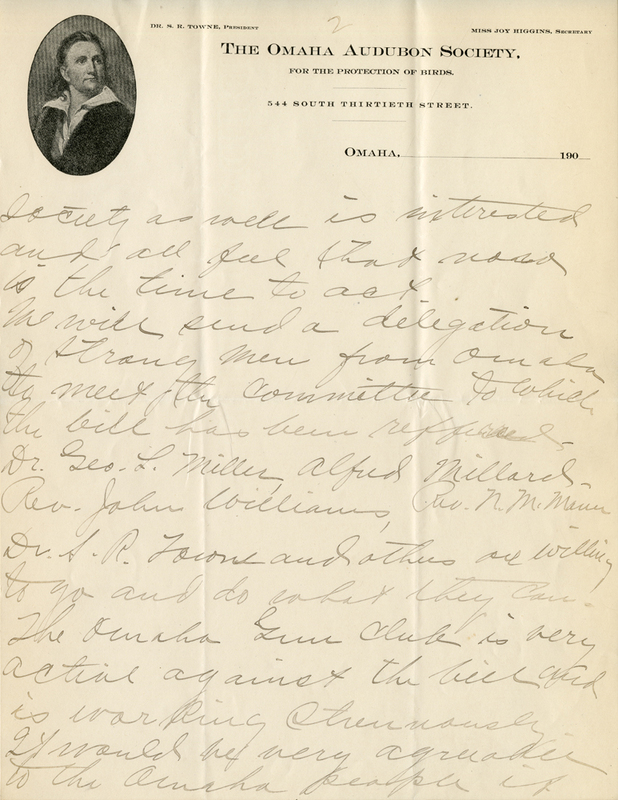 2
DR. S. R. TOWNE, PRESIDENT
MISS JOY HIGGINS, SECRETARY
THE OMAHA AUDUBON SOCIETY,
FOR THE PROTECTION OF BIRDS.
544 SOUTH THIRTIETH STREET.
OMAHA, 190
Society as well is interested
and all feel that now
is the time to act.
We will send a deligation
of strong men from Omaha
to meet the committee to which
the bill has been reffered.
Dr. Geo. L. Miller, Alfred Millard.
Rev. John Williams, Rev. N. M. Mann
Dr. S. R. Towne and others are willing
to go and do what they can.
The Omaha Gun Club is very
active against the bill and
is working strennously
It would be very agreeable
to the Omaha people if